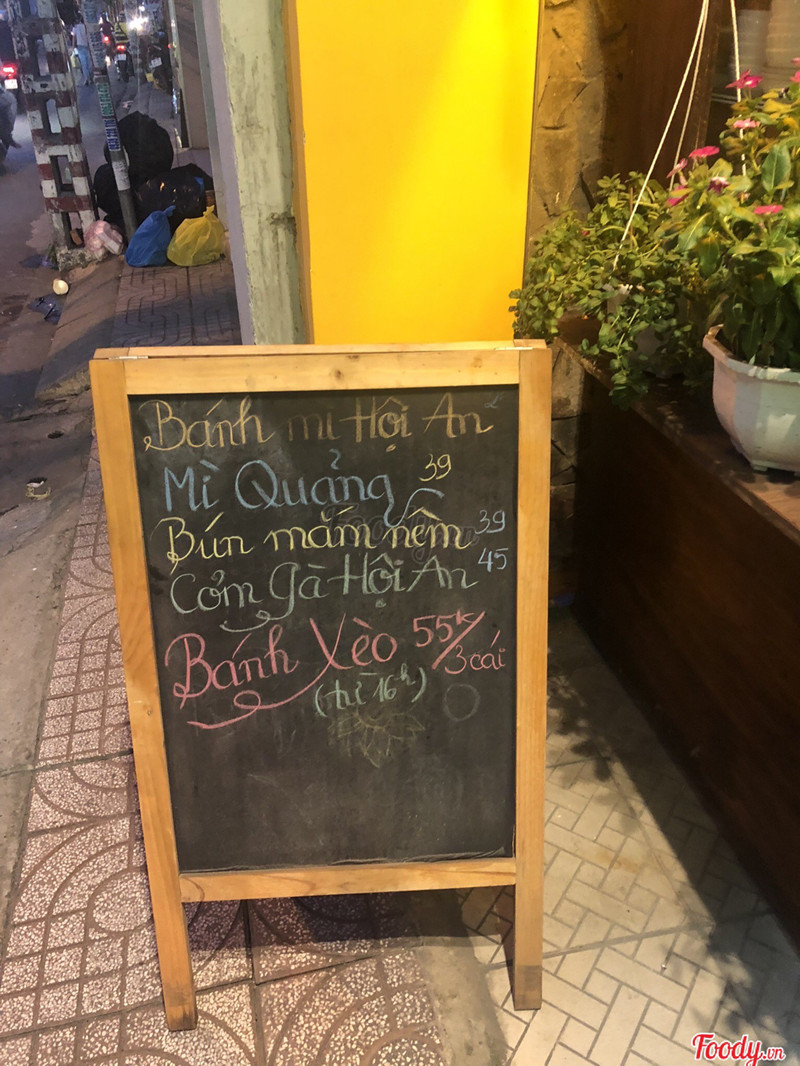 Bánh mì Hội An
Mì Quảng 39
Bún mắm nêm 39
Cơm gà Hội An 45
Bánh Xèo 55k/3cái
(từ 16h)
Foody.vn